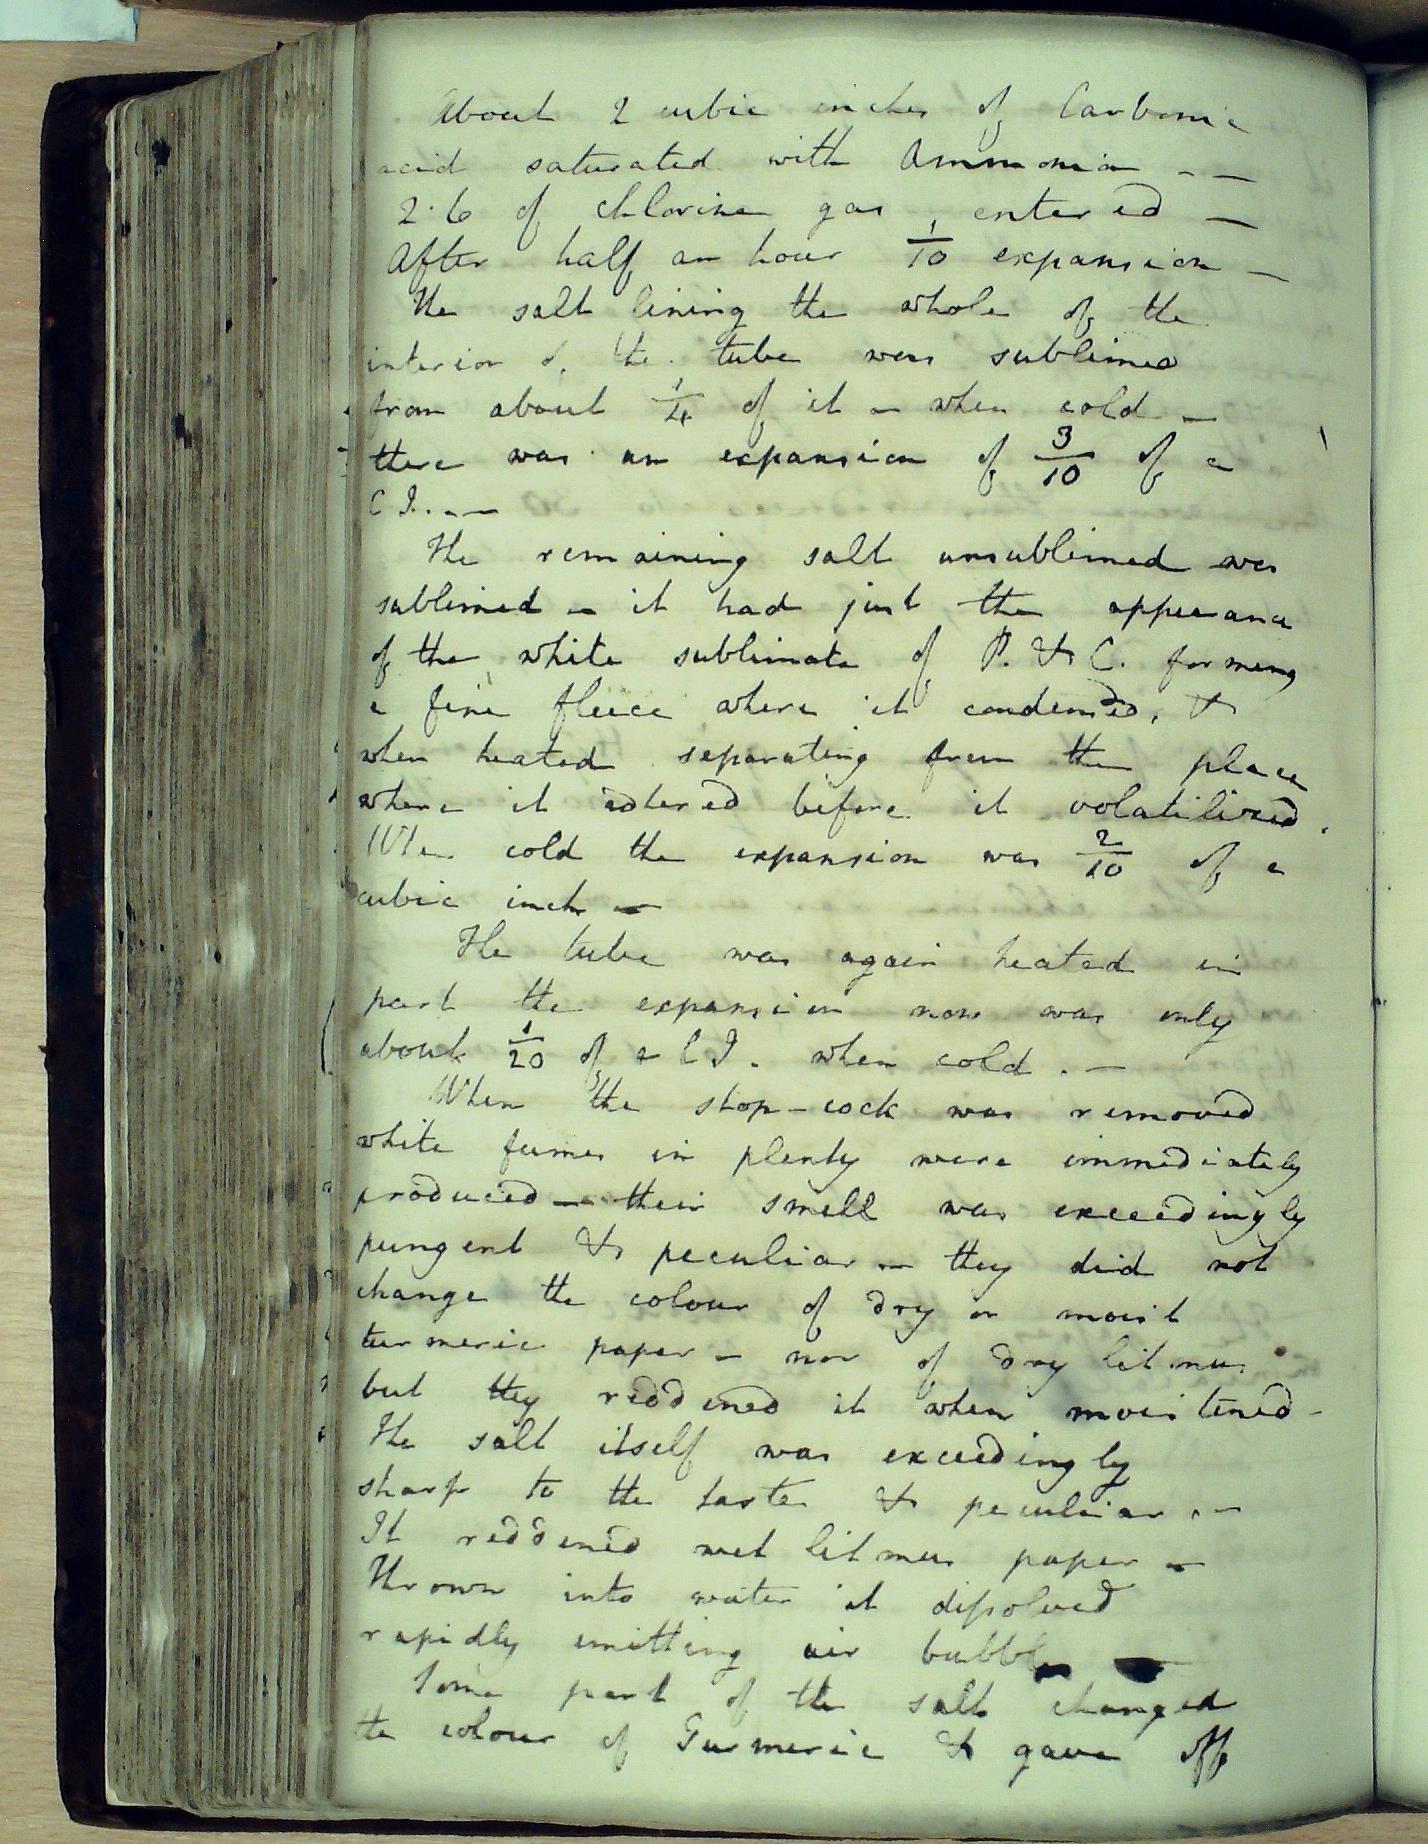 About 2 cubic inches of Carbonic
acid saturated with Ammonia - -
2.6 of chlorine gas, entered -
After half an hour 1/10 expansion -
The salt lining the whole of the
interior of the tube was sublimed
from about 1/4 of it - when cold -
there was an expansion of 3/10 of a
C I. -
The remaining salt unsublimed was
sublimed - it had just the appearance
of the white sublimate of P. & C. forming
a fine fleece where it condensed, &
when heated separating from the place
where it adhered before it volatilized.
When cold the expansion was 2/10 of a
cubic inch -
The tube was again heated in
part the expansion now was only
about 1/20 of a C I. when cold. -
When the stop-cock was removed
white fumes in plenty were immediately
produced - their smell was exceedingly
pungent & peculiar - they did not
change the colour of dry or moist
turmeric paper - nor of dry litmus
but they reddened it when moistened -
The salt itself was exceedingly
sharp to the taste & peculiar. -
It reddened wet litmus paper -
Thrown into water it dissolved
rapidly emitting air bubbles -
Some part of the salt changed
the colour of Turmeric & gave off